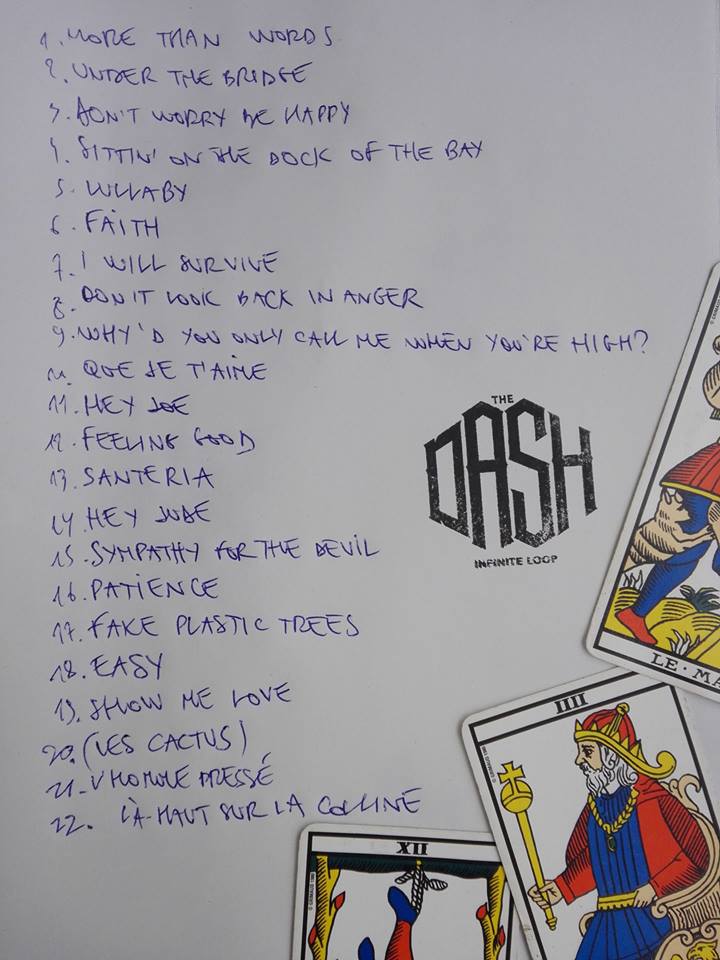 1. MORE THAN WORDS
2. UNDER THE BRIDGE
3. DON'T WORRY BE HAPPY
4. SITTIN' ON THE DOCK OF THE BAY
5. LULLABY
6. FAITH
7. I WILL SURVIVE
8. DON'T LOOK BACK IN ANGER
9. WHY'D YOU ONLY CALL ME WHEN YOU'RE HIGH?
10. QUE JE T'AIME
11. HEY JOE
12. FEELING GOOD
13. SANTERIA
14. HEY JUDE
15. SYMPATHY FOR THE DEVIL
16. PATIENCE
17. FAKE PLASTIC TREES
18. EASY
19. SHOW ME LOVE
20. (LES CACTUS)
21. L'HOMME PRESSÉ
22. LÀ-HAUT SUR LA COLLINE
THE
DASH
INFINITE LOOP
LE·MA
IIII
XII